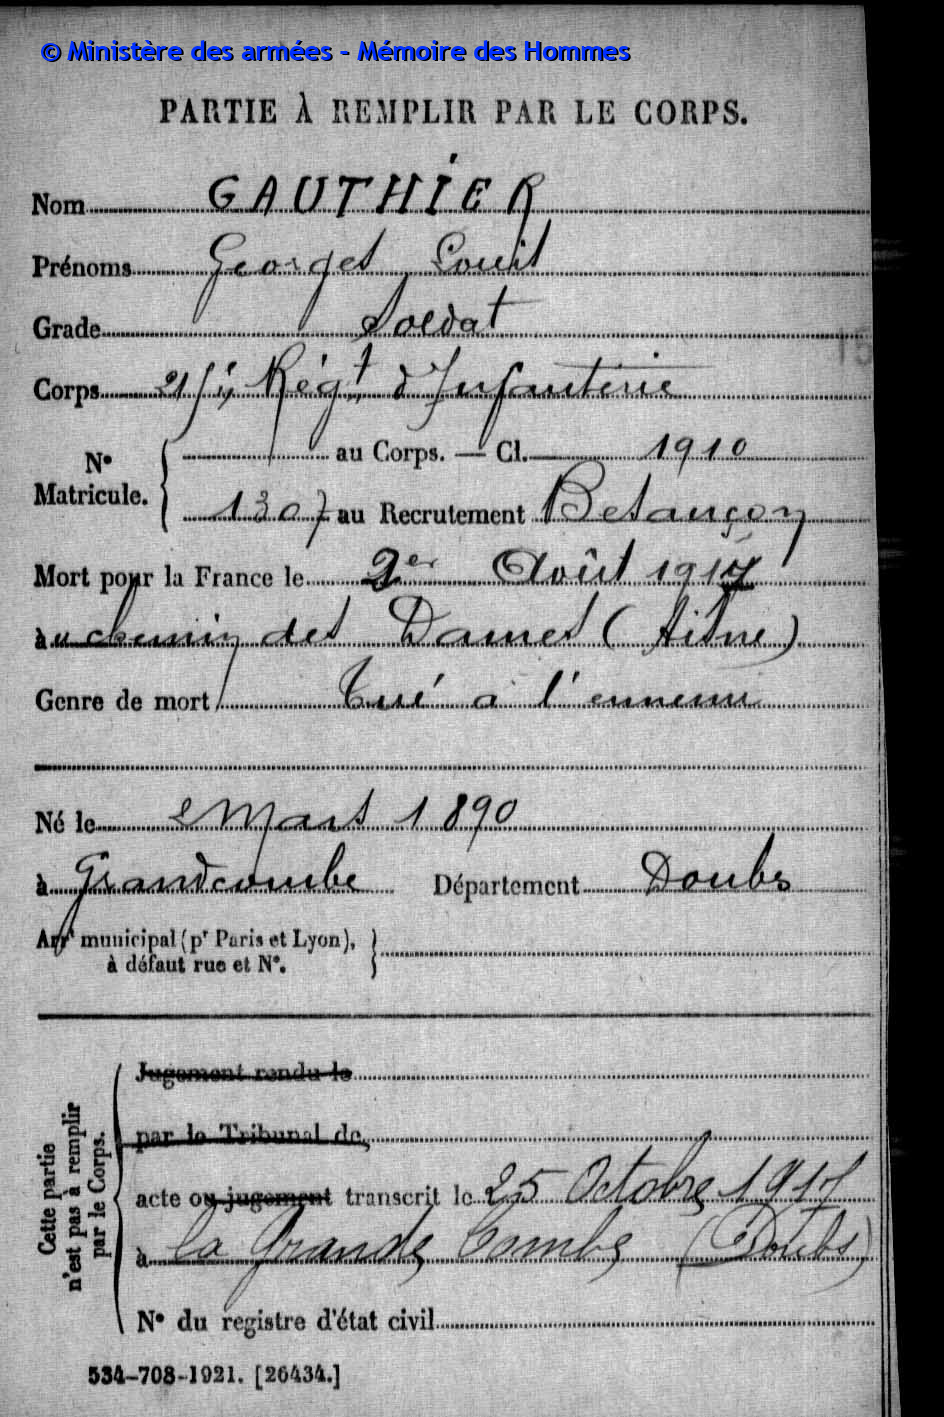 © Ministère des armées - Mémoire des Hommes
PARTIE À REMPLIR PAR LE CORPS.
Nom GAUTHIER
Prénoms Georges Louis
Grade Soldat
Corps Régt d'Infanterie
N° Matricule. au Corps. — Cl. 1910
1307 au Recrutement Besançon
Mort pour la France le 2er Août 1917
au chemin des Dames (Aisne)
Genre de mort Tué a l'ennemi
Né le 2 Mars 1890
à Grandcombe Département Doubs
Arrt municipal (pr Paris et Lyon),
à défaut rue et N°.
Cette partie n'est pas à remplir par le Corps.
Jugement rendu le
par le Tribunal de
acte ou jugement transcrit le 25 Octobre 1917
à la Grande Combe (Doubs)
N° du registre d'état civil
534-708-1921. [26434.]